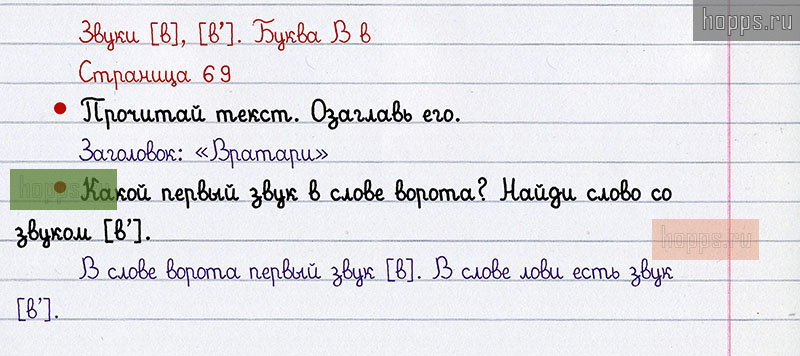 hopps.ru
Звуки [в], [в’]. Буква В в
Страница 69
• Прочитай текст. Озаглавь его.
Заголовок: «Вратари»
hopps.ru
• Какой первый звук в слове ворота? Найди слово со
звуком [в’].
hopps.ru
В слове ворота первый звук [в]. В слове лови есть звук
[в’].